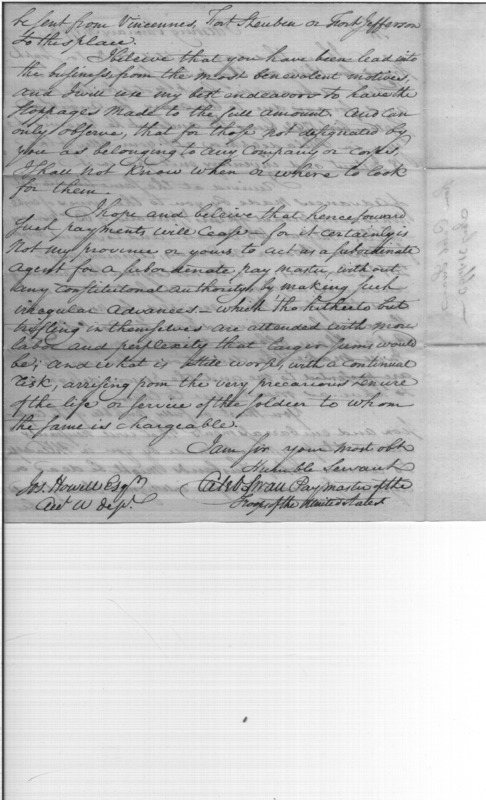 be sent from Vincennes, Fort Steuben or Fort Jefferson
to this place.
I beleive that you have been lead into
the business, from the most benevolent motives,
and I will use my best endeavors to have the
stoppages made to the full amount. And can
only observe, that for those not designated by
you as belonging to any company or corps,
I shall not know when or where to look
for them.
I hope and beleive that henceforward
such payments will cease – for it certainly is
not my province or yours to act as a subordinate
agent for a subordinate pay master, without
any constitutional authority, by making such
irregular advances – which tho' hitherto but
trifling in themselves are attended with more
labor and perplexity that larger sums would
be; and what is still worse, with a continual
risk, arrising from the very precarious tenure
of the life or service of the soldier to whom
the same is chargeable.
I am sir your most obt
Humble Servant
Jos. Howell Esqr
Caleb Swan Paymaster of the
Troops of the United States
Acct W Dept.